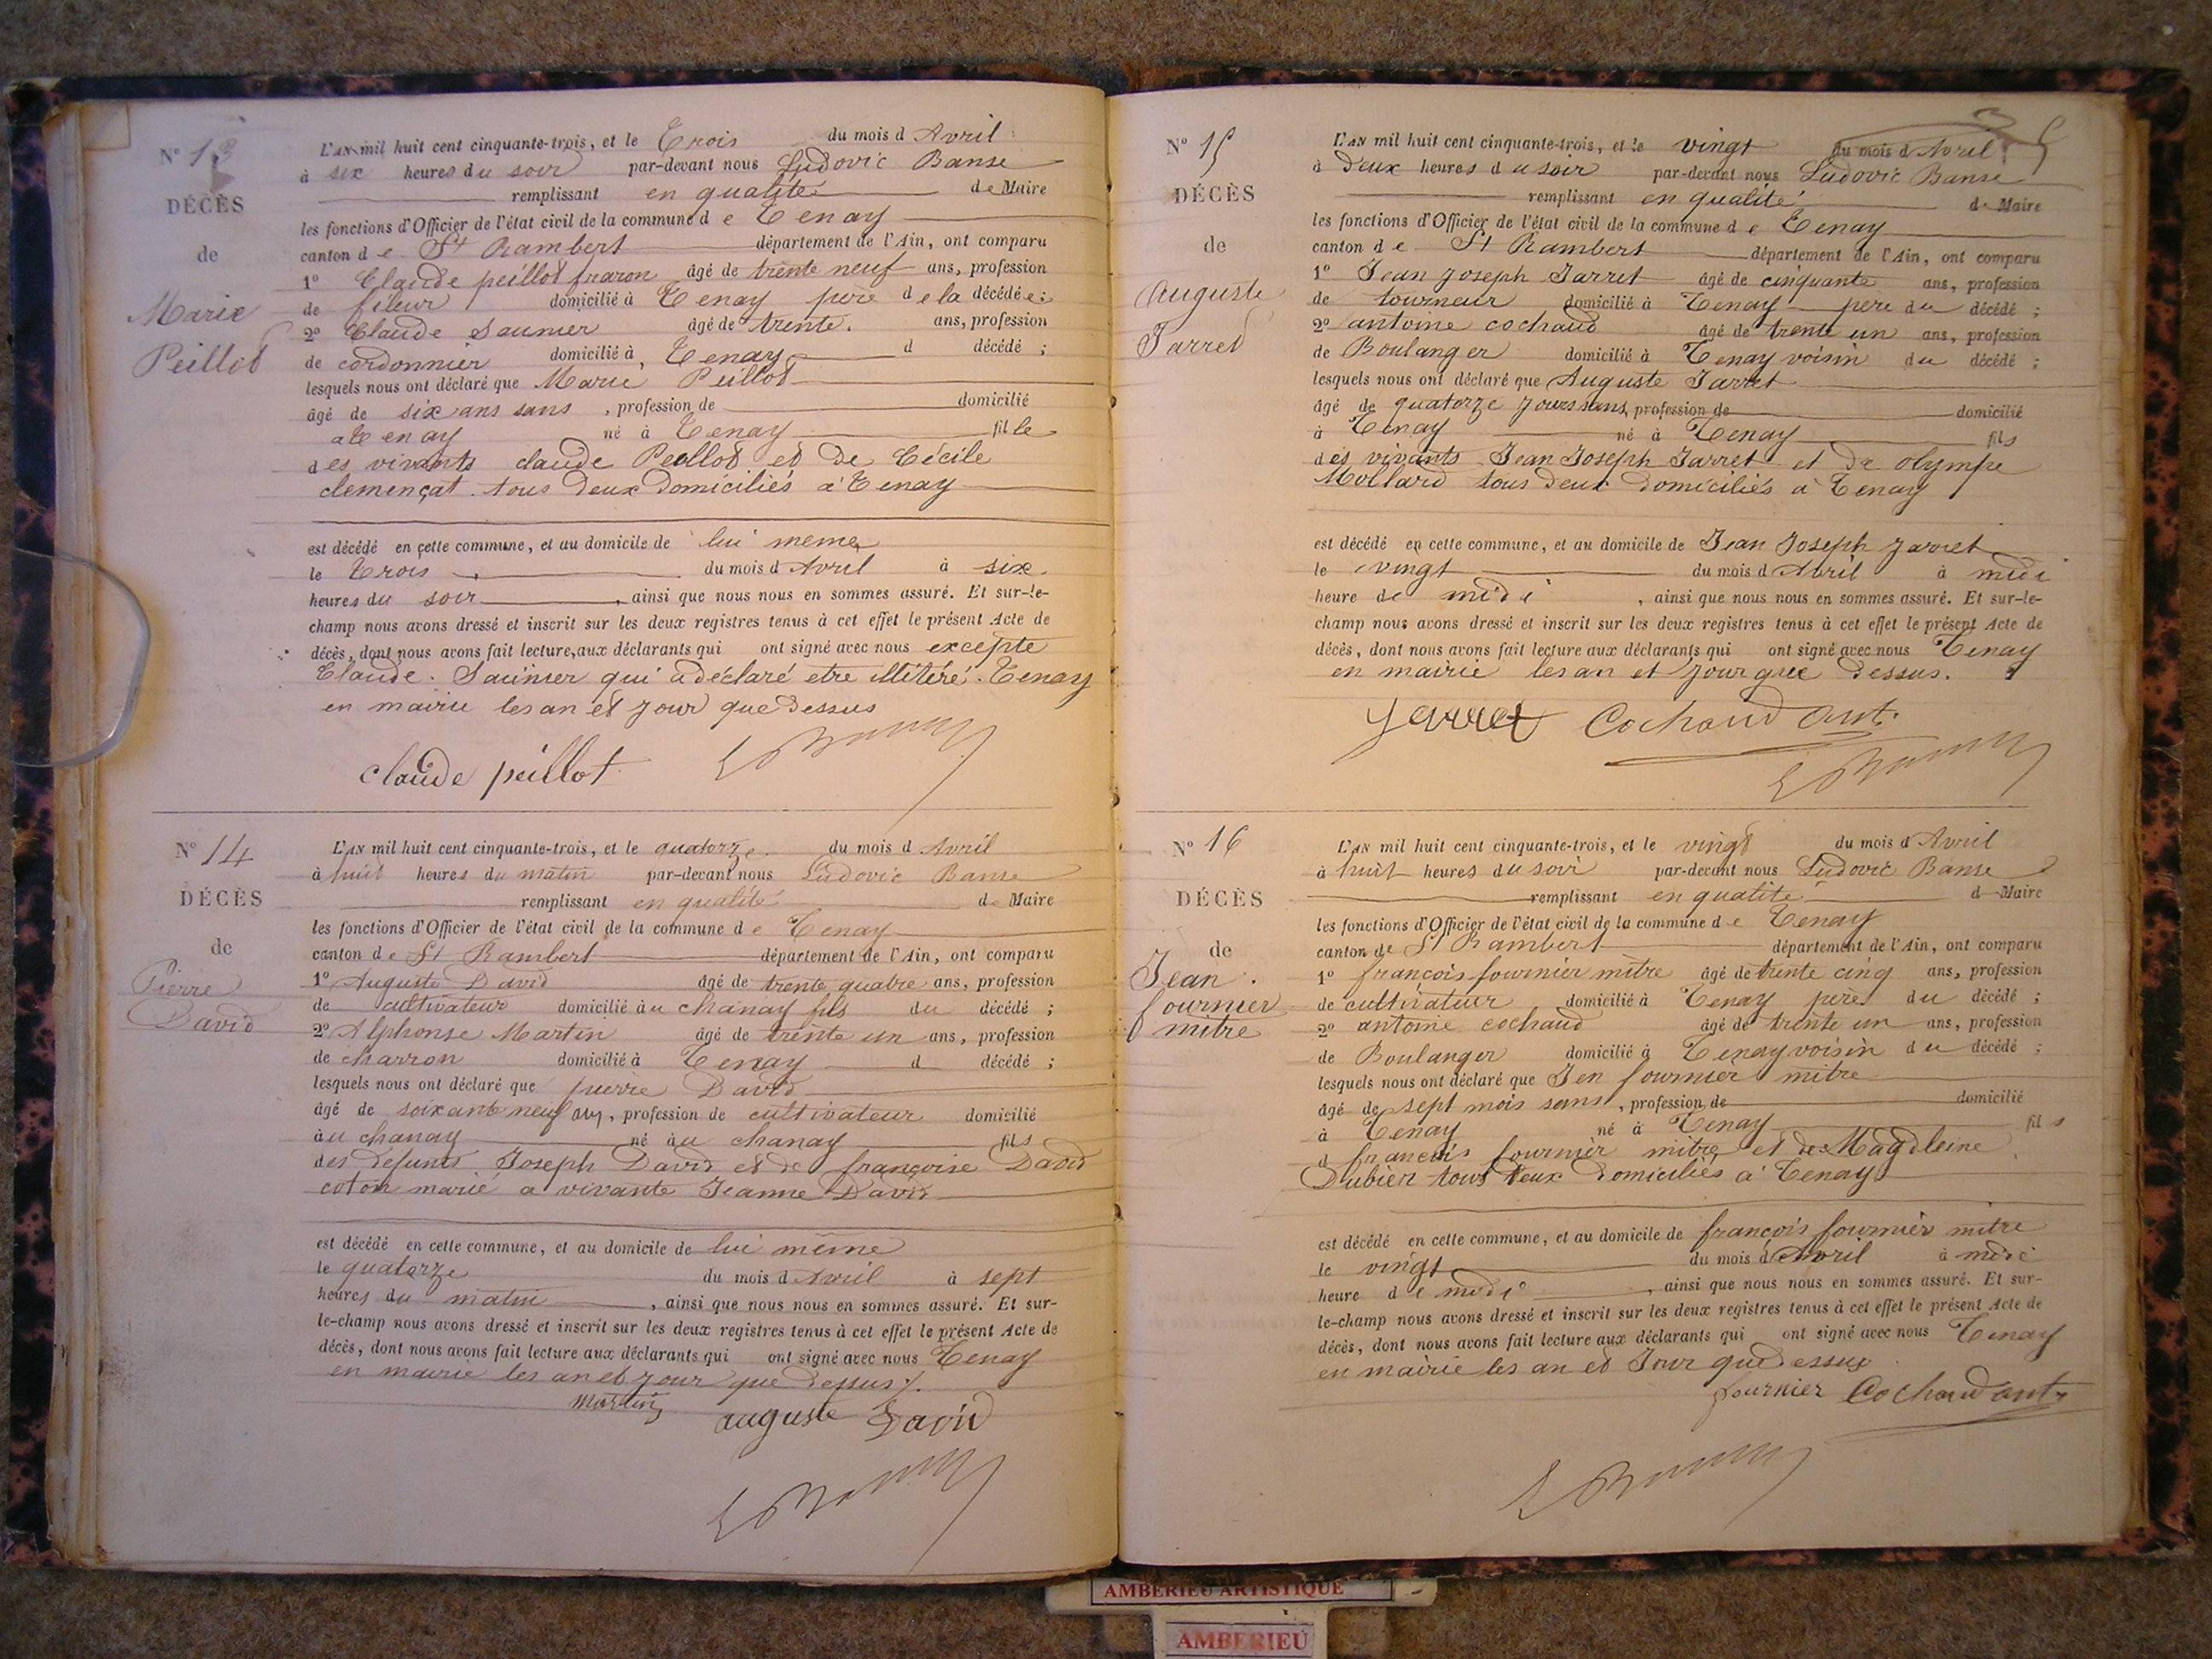 Nº 13
DÉCÈS
de
Marie
Peillod
L'AN mil huit cent cinquante-trois, et le Trois du mois d Avril
à six heures du soir par-devant nous Ludovic Banse
remplissant en qualité de Maire
les fonctions d'Officier de l'état civil de la commune d e Tenay
canton d e St Rambert département de l'Ain, ont comparu
1º Claude peillod fraron âgé de trente neuf ans, profession
de fileur domicilié à Tenay père de la décédée;
2º Claude Saunier âgé de trente. ans, profession
de cordonnier domicilié à Tenay d décédé ;
lesquels nous ont déclaré que Marie Peillod
âgé de six ans sans , profession de domicilié
a Tenay né à Tenay fille
des vivants claude Peillod et De Cécile
clemençat tous Deux Domiciliés a Tenay
est décédé en cette commune, et au domicile de lui meme
le Trois du mois d Avril à six
heures du soir , ainsi que nous nous en sommes assuré. Et sur-le-
champ nous avons dressé et inscrit sur les deux registres tenus à cet effet le présent Acte de
décès, dont nous avons fait lecture, aux déclarants qui ont signé avec nous excepte
Claude. Saunier qui a déclaré etre illitéré. Tenay
en mairie les an et jour que Dessus
claude peillot
Nº 14
DÉCÈS
de
Pierre
David
L'AN mil huit cent cinquante-trois, et le quatorze du mois d Avril
à huit heures du matin par-devant nous Ludovic Banse
remplissant en qualité de Maire
les fonctions d'Officier de l'état civil de la commune d e Tenay
canton de St Rambert département de l'Ain, ont comparu
1º Auguste David âgé de trente quatre ans, profession
de cultivateur domicilié au chanay fils du décédé ;
2º Alphonse Martin âgé de trente un ans, profession
de charron domicilié à Tenay d décédé ;
lesquels nous ont déclaré que pierre David
âgé de soixante neuf ans, profession de cultivateur domicilié
àu chanay né àu chanay fils
des defunts Joseph David et de françoise David
coton marié a vivante Jeanne David
est décédé en cette commune, et au domicile de lui même
le quatorze du mois d Avril à sept
heures du matin , ainsi que nous nous en sommes assuré. Et sur-
le-champ nous avons dressé et inscrit sur les deux registres tenus à cet effet le présent Acte de
décès, dont nous avons fait lecture aux déclarants qui ont signé avec nous Tenay
en mairie les an et jour que dessus /.
Martin auguste David
Nº 15
DÉCÈS
de
Auguste
Jarret
L'AN mil huit cent cinquante-trois, et le vingt du mois d Avril
à deux heures d u soir par-devant nous Ludovic Banse
remplissant en qualité de Maire
les fonctions d'Officier de l'état civil de la commune d e Tenay
canton d e St Rambert département de l'Ain, ont comparu
1º Jean Joseph Jarret âgé de cinquante ans, profession
de tourneur domicilié à Tenay pere du décédé ;
2º antoine cochaud âgé de trente un ans, profession
de Boulanger domicilié à Tenay voisin du décédé ;
lesquels nous ont déclaré que Auguste Jarret
âgé de quatorze jours sans, profession de domicilié
à Tenay né à Tenay fils
des vivants Jean Joseph Jarret et de olympe
Mollard tous deux Domiciliés a Tenay
est décédé en cette commune, et au domicile de Jean Joseph Jarret
le vingt du mois d Avril à midi
heure de midi , ainsi que nous nous en sommes assuré. Et sur-le-
champ nous avons dressé et inscrit sur les deux registres tenus à cet effet le présent Acte de
décès, dont nous avons fait lecture aux déclarants qui ont signé avec nous Tenay
en mairie les an et jour que dessus.
Jarret Cochaud Ant.
Nº 16
DÉCÈS
de
Jean.
fournier
mitre
L'AN mil huit cent cinquante-trois, et le vingt du mois d Avril
à huit heures du soir par-devant nous Ludovic Banse
remplissant en qualité d Maire
les fonctions d'Officier de l'état civil de la commune d e Tenay
canton de St Rambert département de l'Ain, ont comparu
1º françois fournier mitre âgé de trente cinq ans, profession
de cultivateur domicilié à Tenay père du décédé ;
2º antoine cochaud âgé de trente un ans, profession
de Boulanger domicilié à Tenay voisin du décédé ;
lesquels nous ont déclaré que Jen fournier mitre
âgé de sept mois sans , profession de domicilié
à Tenay né à Tenay fils
d françois fournier mitre et de Magdleine
Dubier tous Deux Domiciliés à Tenay
est décédé en cette commune, et au domicile de françois fournier mitre
le vingt du mois d'Avril à midi
heure de midi , ainsi que nous nous en sommes assuré. Et sur-
le-champ nous avons dressé et inscrit sur les deux registres tenus à cet effet le présent Acte de
décès, dont nous avons fait lecture aux déclarants qui ont signé avec nous Tenay
en mairie les an et Jour que dessus
fournier Cochaud ant
AMBERIEU ARTISTIQUE
AMBERIEU